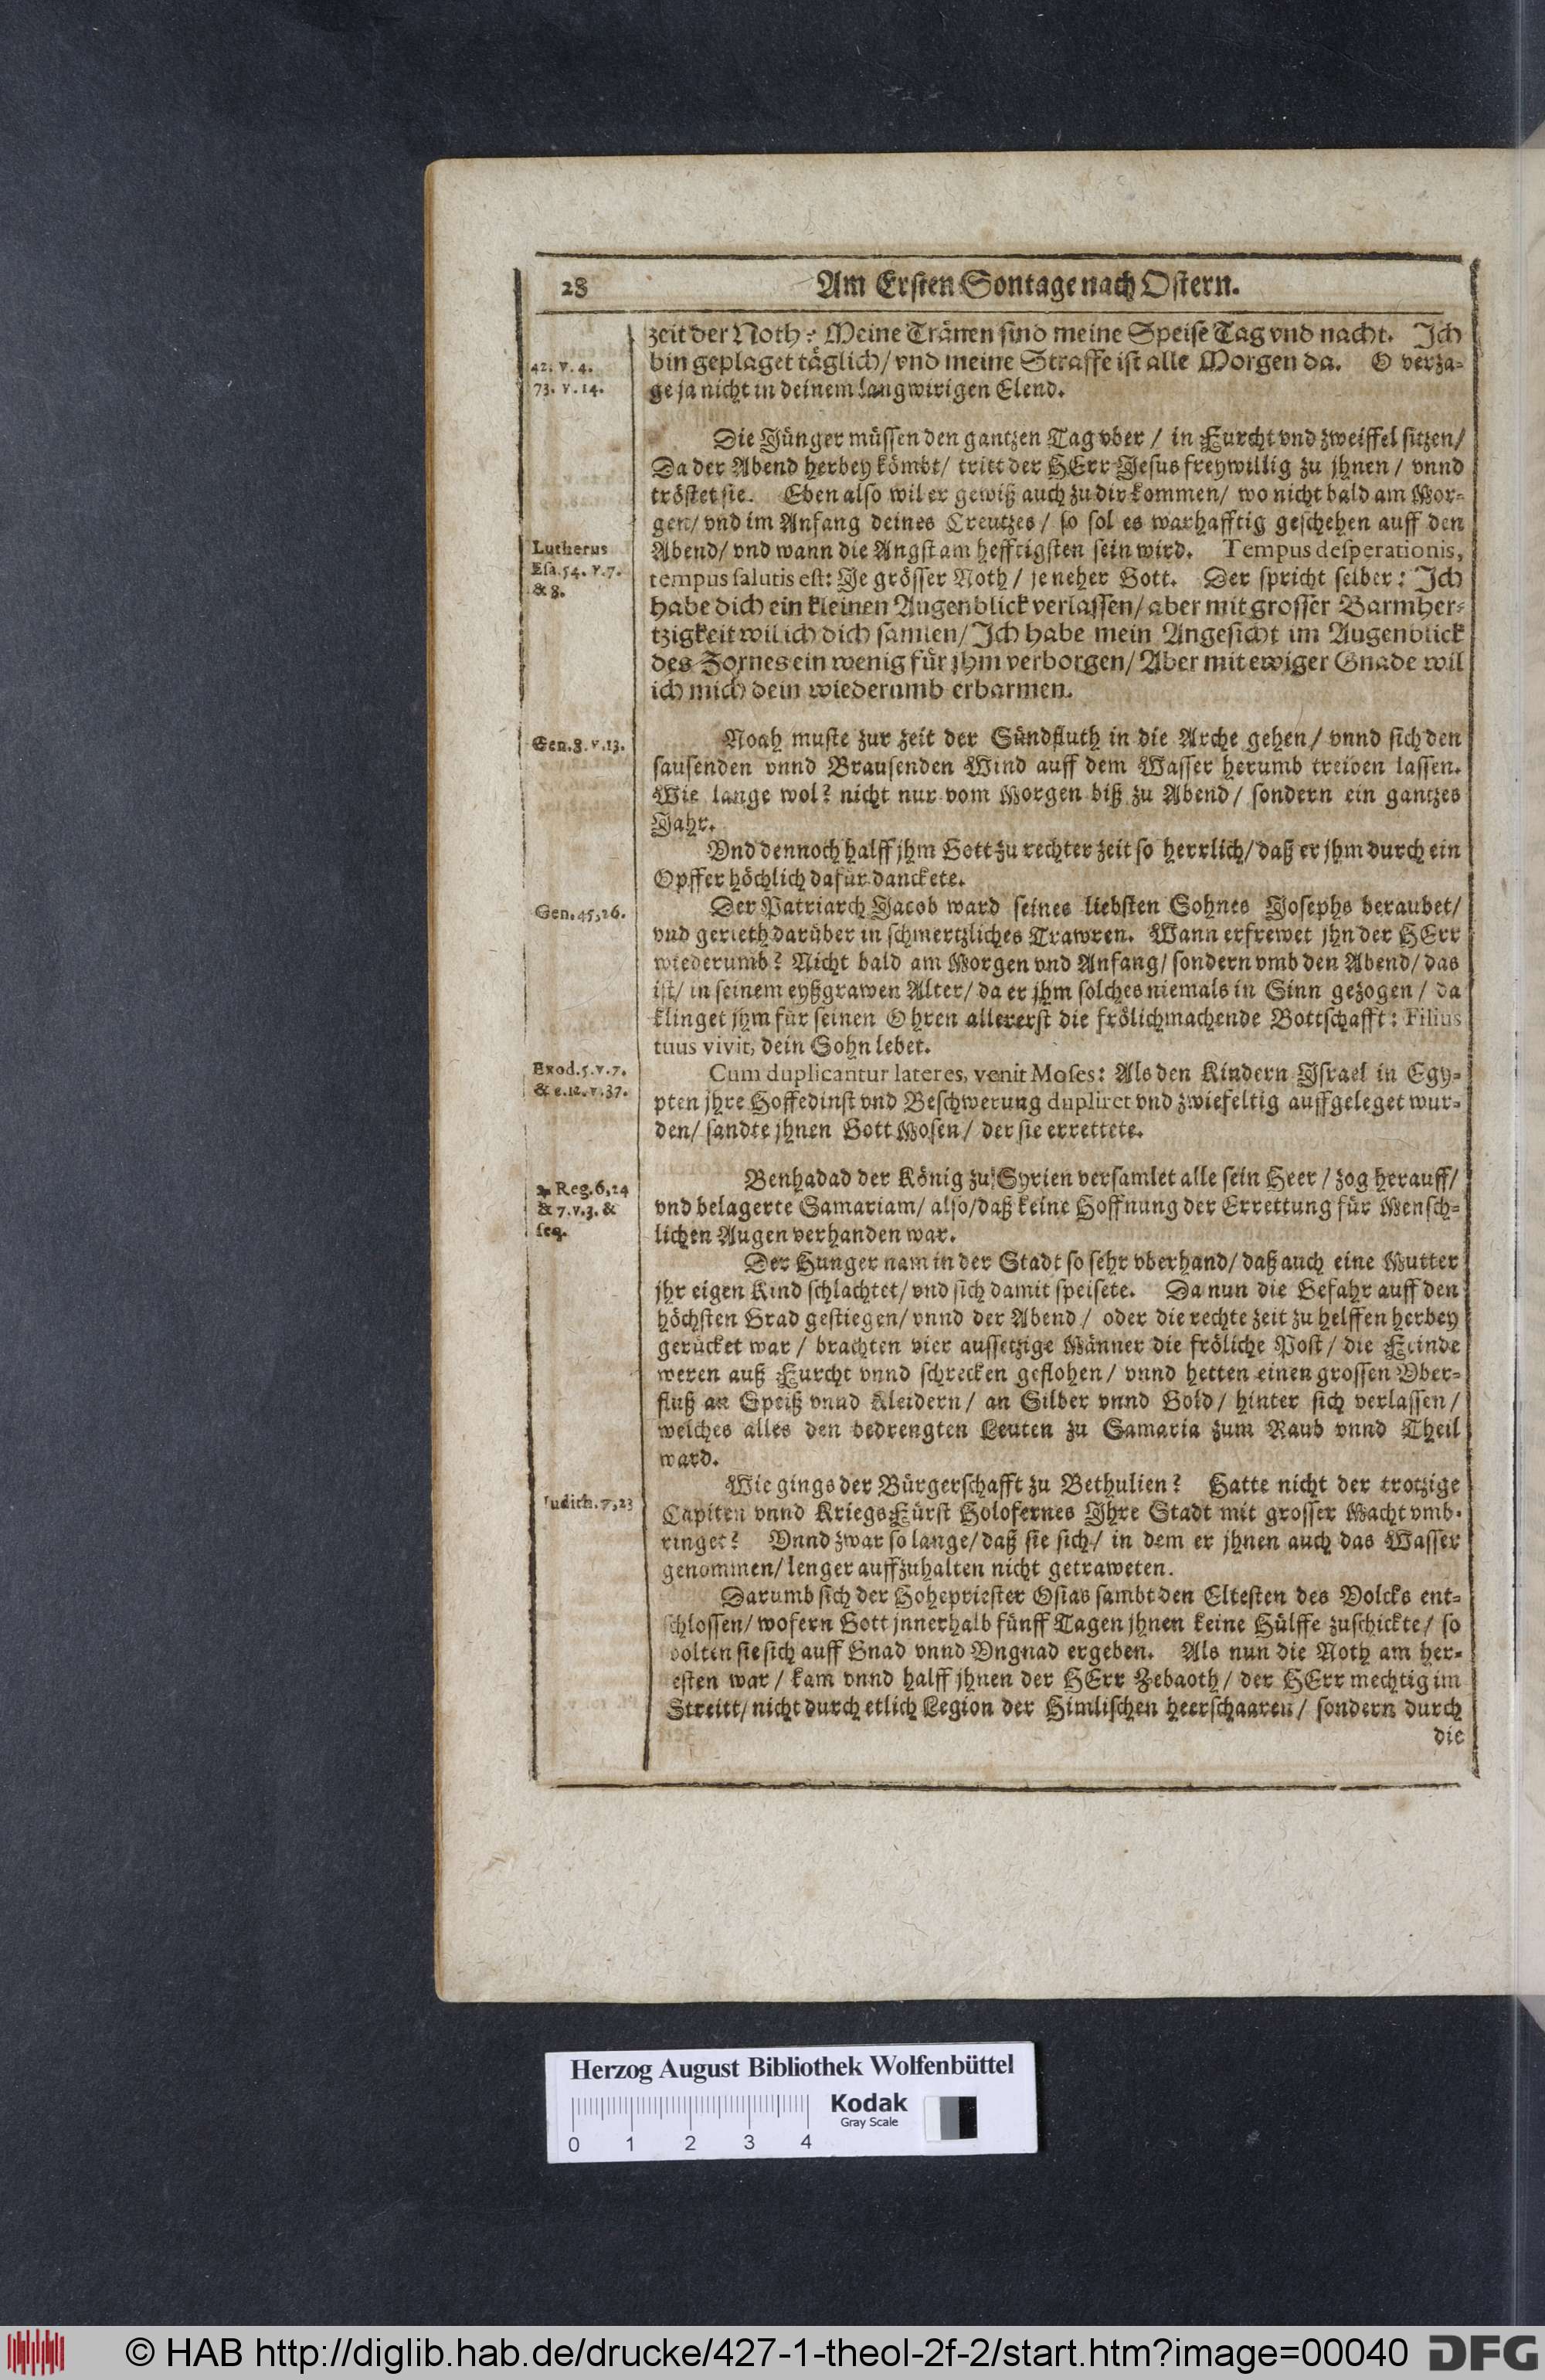 28 Am Ersten Sontage nach Ostern.
zeit der Noth: Meine Tränen sind meine Speise Tag vnd nacht. Ich
42. v. 4.
bin geplaget täglich/ vnd meine Straffe ist alle Morgen da. O verza-
73. v. 14.
ge ja nicht in deinem langwirigen Elend.
Die Jünger müssen den gantzen Tag vber / in Furcht vnd zweiffel sitzen/
Da der Abend herbey kömbt/ tritt der HErr Jesus freywillig zu jhnen/ vnnd
tröstet sie. Eben also wil er gewiß auch zu dir kommen/ wo nicht bald am Mor-
gen/ vnd im Anfang deines Creutzes/ so sol es warhafftig geschehen auff den
Lutherus
Abend/ vnd wann die Angst am hefftigsten sein wird. Tempus desperationis,
Esa. 54. v. 7.
tempus salutis est: Je grösser Noth/ je neher Gott. Der spricht selber: Ich
& 8.
habe dich ein kleinen Augenblick verlassen/ aber mit grosser Barmher-
tzigkeit wil ich dich samlen/ Ich habe mein Angesicht im Augenblick
des Zornes ein wenig für jhm verborgen/ Aber mit ewiger Gnade wil
ich mich dein wiederumb erbarmen.
Gen. 8. v. 13.
Noah muste zur zeit der Sündfluth in die Arche gehen/ vnnd sich den
sausenden vnnd Brausenden Wind auff dem Wasser herumb treiben lassen.
Wie lange wol? nicht nur vom Morgen biß zu Abend/ sondern ein gantzes
Jahr.
Vnd dennoch halff jhm Gott zu rechter zeit so herrlich/ daß er jhm durch ein
Opffer höchlich dafür danckete.
Gen. 45, 26.
Der Patriarch Jacob ward seines liebsten Sohnes Josephs beraubet/
vnd gerieth darüber in schmertzliches Trawren. Wann erfrewet jhn der HErr
wiederumb? Nicht bald am Morgen vnd Anfang/ sondern vmb den Abend/ das
ist/ in seinem eyßgrawen Alter/ da er jhm solches niemals in Sinn gezogen/ da
klinget jhm für seinen Ohren allererst die frölichmachende Bottschafft: Filius
tuus vivit, dein Sohn lebet.
Exod. 5. v. 7.
Cum duplicantur lateres, venit Moses: Als den Kindern Israel in Egy-
& c. 12. v. 37.
pten jhre Hoffedinst vnd Beschwerung dupliret vnd zwiefeltig auffgeleget wur-
den/ sandte jhnen Gott Mosen/ der sie errettete.
2 Reg. 6, 24
Benhadad der König zu Syrien versamlet alle sein Heer/ zog herauff/
& 7. v. 3. &
vnd belagerte Samariam/ also/ daß keine Hoffnung der Errettung für Mensch-
seq.
lichen Augen verhanden war.
Der Hunger nam in der Stadt so sehr vberhand/ daß auch eine Mutter
jhr eigen Kind schlachtet/ vnd sich damit speisete. Da nun die Gefahr auff den
höchsten Grad gestiegen/ vnnd der Abend/ oder die rechte zeit zu helffen herbey
gerücket war/ brachten vier aussetzige Männer die fröliche Post/ die Feinde
weren auß Furcht vnnd schrecken geflohen/ vnnd hetten einen grossen Vber-
fluß an Speiß vnnd Kleidern/ an Silber vnnd Gold/ hinter sich verlassen/
welches alles den bedrengten Leuten zu Samaria zum Raub vnnd Theil
ward.
Wie gings der Bürgerschafft zu Bethulien? Hatte nicht der trotzige
Iudith. 7, 23
Capiten vnnd KriegsFürst Holofernes Jhre Stadt mit grosser Macht vmb-
ringet? Vnnd zwar so lange/ daß sie sich/ in dem er jhnen auch das Wasser
genommen/ lenger auffzuhalten nicht getraweten.
Darumb sich der Hohepriester Osias sambt den Eltesten des Volcks ent-
schlossen/ wofern Gott jnnerhalb fünff Tagen jhnen keine Hülffe zuschickte/ so
wolten sie sich auff Gnad vnnd Vngnad ergeben. Als nun die Noth am her-
esten war/ kam vnnd halff jhnen der HErr Zebaoth/ der HErr mechtig im
Streitt/ nicht durch etlich Legion der Himlischen heerschaaren/ sondern durch
die
Herzog August Bibliothek Wolfenbüttel
Kodak
Gray Scale
0 1 2 3 4
© HAB http://diglib.hab.de/drucke/427-1-theol-2f-2/start.htm?image=00040 DFG